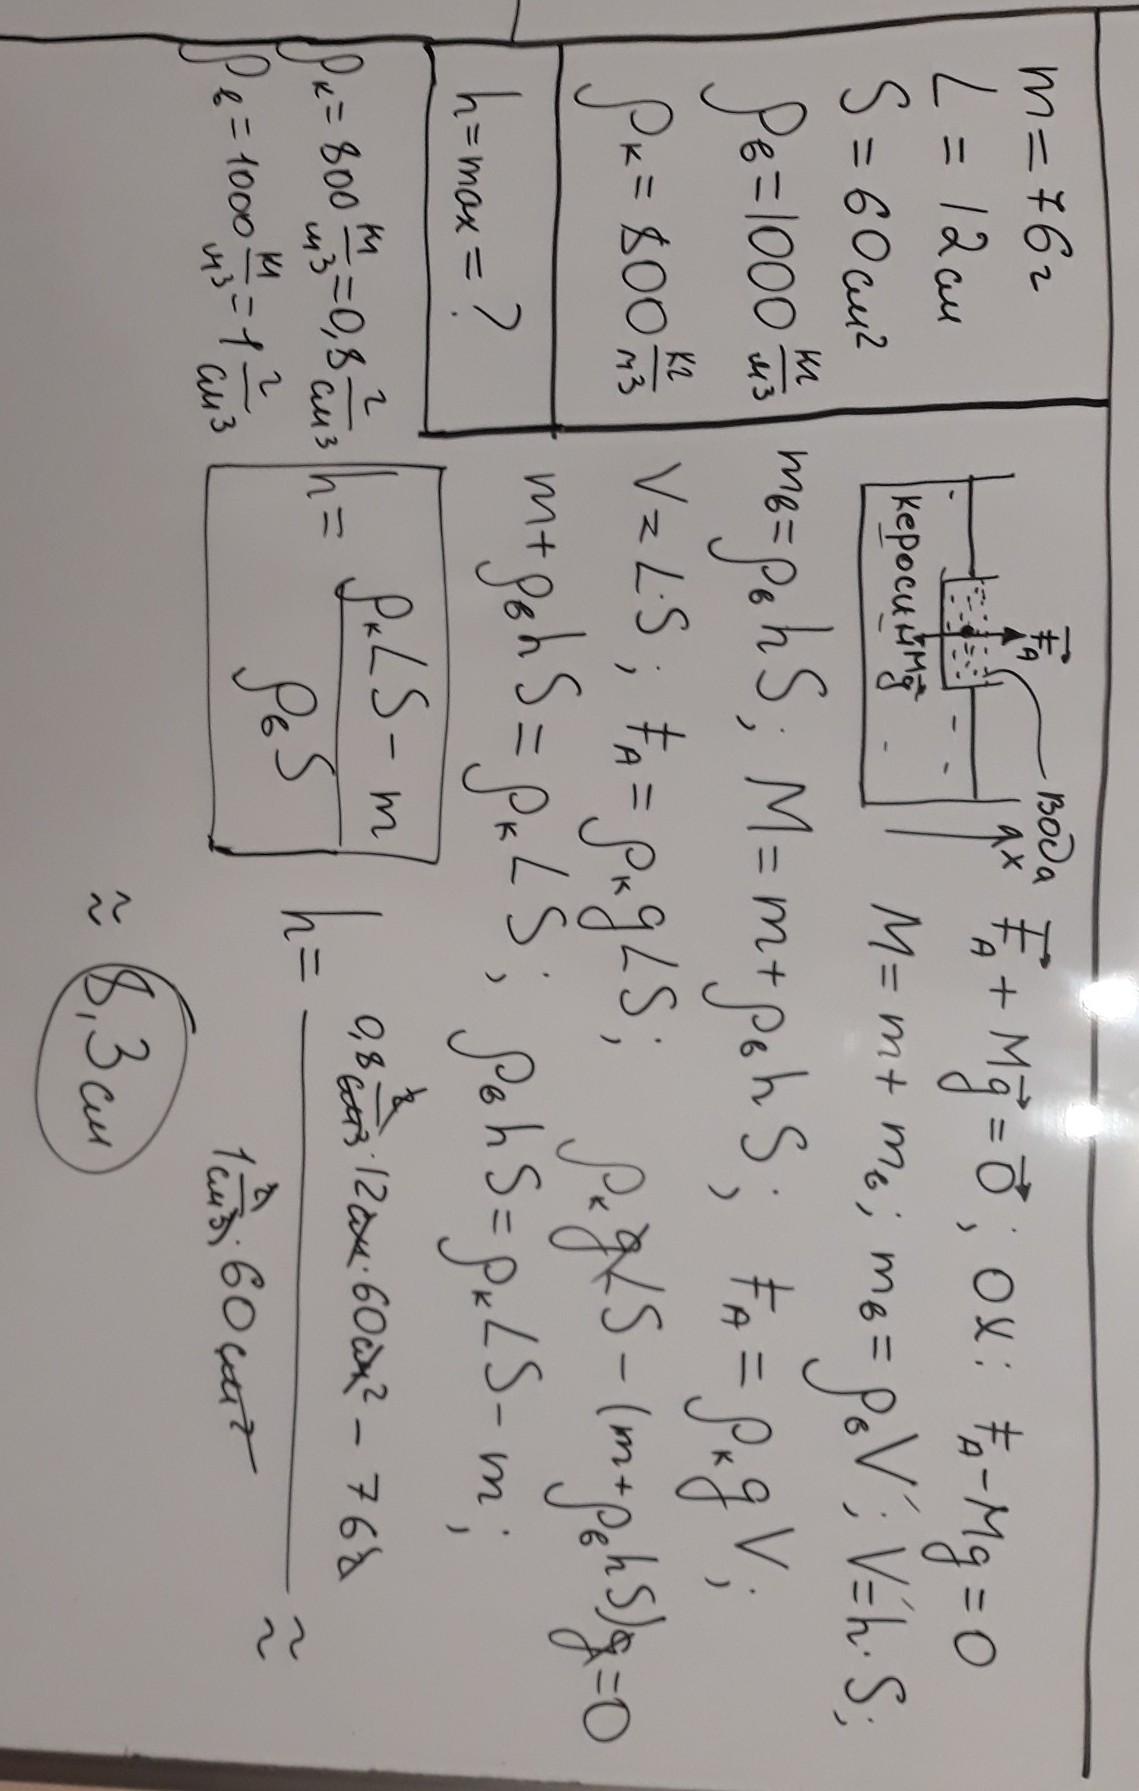 m = 76г
L = 12см
S = 60см²
ρв = 1000 кг/м3
ρк = 800 кг/м3
h = max = ?
ρк = 800 кг/м3 = 0,8 г/см3
ρв = 1000 кг/м3 = 1 г/см3
F⃗A
вода
0x
керосин
Mg⃗
F⃗A + Mg⃗ = 0⃗; OX: FA - Mg = 0
M = m + mв; mв = ρвV'; V' = h·S;
mв = ρв h S; M = m + ρв h S; FA = ρк g V;
V = L·S; FA = ρк g L S; ρк g L S - (m + ρв h S) g = 0
m + ρв h S = ρк L S; ρв h S = ρк L S - m;
h = (ρк L S - m)/(ρв S)
h = (0,8 г/см3 · 12см · 60см² - 76г)/(1 г/см3 · 60см²) ≈
≈ 8,3см